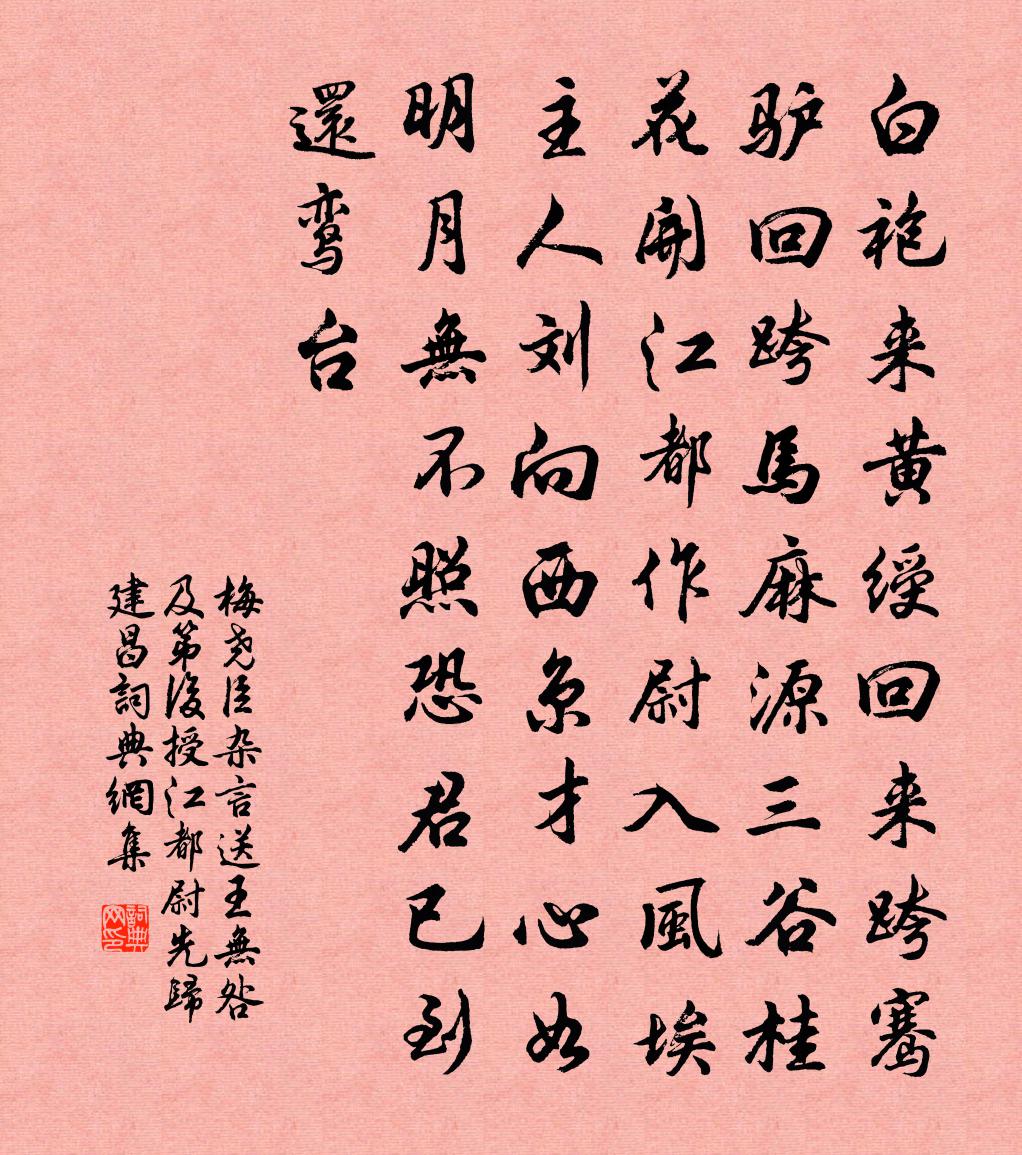 白袍来黄绶回来跨骞
驴回跨馬麻源三谷桂
花開江都作尉入風埃
主人刘向西京才心如
明月無不照恐君已到
還鸾台
梅尧臣杂言送王無咎
及第後授江都尉先歸
建昌詞典網集
詞典网印